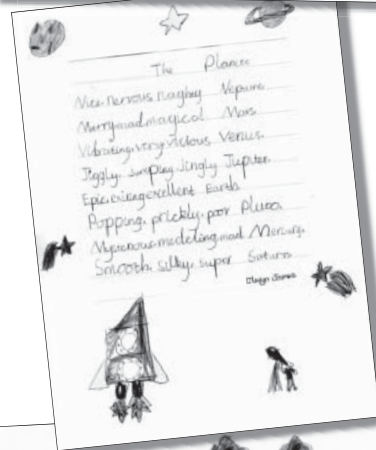 The Planets
Nice, nervous, naghey Neptune
Merry, mad magical Mars
Vibrating, very vicious Venus.
Jiggly, jumping Jingly Jupiter
Epic, exiting excellent Earth
Popping, prickly, poor Pluto.
Mysterious, medeling, mad Mercury.
Smooth, silky, super Saturn
James